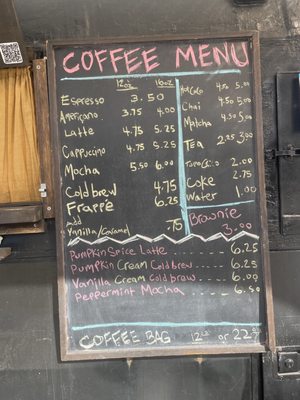 COFFEE MENU
12oz 16oz
Espresso 3.50
Americano 3.75 4.00
Latte 4.75 5.25
Cappuccino 4.75 5.25
Mocha 5.50 6.00
Cold brew 4.75
Frappe 6.25
Add
Vanilla/Caramel .75
Hot Coco 4.50 5.00
Chai 4.50 5.00
Matcha 4.50 5.00
Tea 2.25 3.00
2.00
Coke 2.75
Water 1.00
Brownie
3.00
Pumpkin Spice Latte 6.25
Pumpkin Cream Cold brew 6.25
Vanilla Cream Cold brew 6.00
Peppermint Mocha 6.50
COFFEE BAG 12 or 22